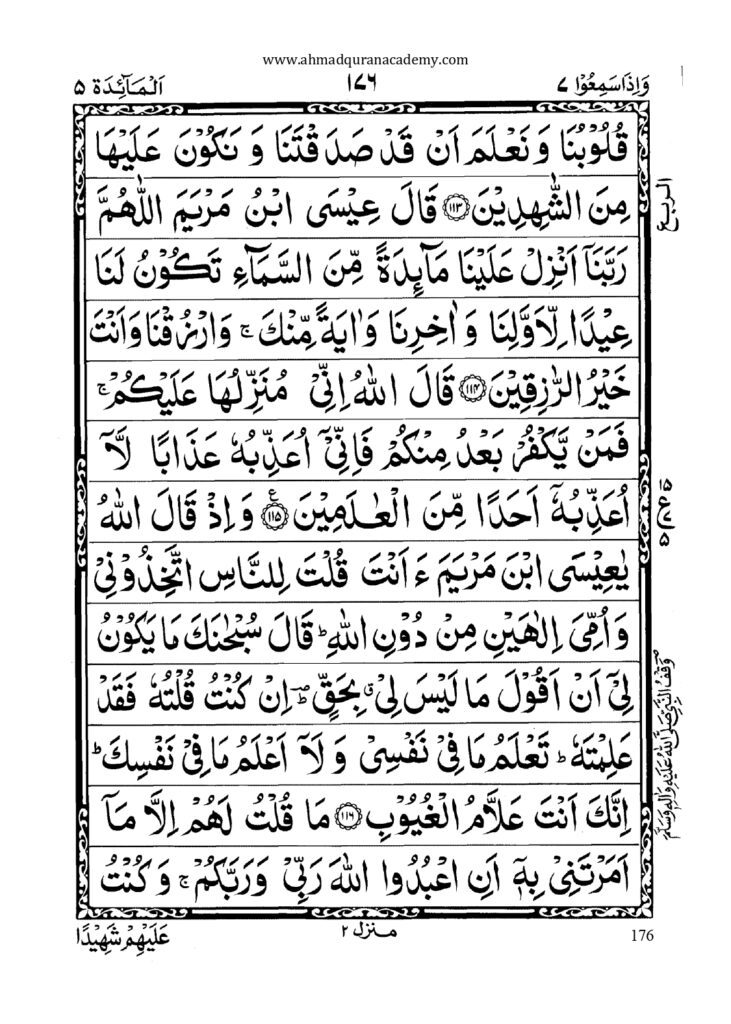 www.ahmadquranacademy.com
وَاِذَا سَمِعُوْا ٧ ١٧٦ اَلْمَآئِدَة ٥
قُلُوْبُنَا وَنَعْلَمَ اَنْ قَدْ صَدَقْتَنَا وَنَكُوْنَ عَلَيْهَا
مِنَ الشّٰهِدِيْنَ ﴿١١٣﴾ قَالَ عِيْسَى ابْنُ مَرْيَمَ اللّٰهُمَّ
رَبَّنَآ اَنْزِلْ عَلَيْنَا مَآئِدَةً مِّنَ السَّمَآءِ تَكُوْنُ لَنَا
عِيْدًا لِّاَوَّلِنَا وَاٰخِرِنَا وَاٰيَةً مِّنْكَ ۚ وَارْزُقْنَا وَاَنْتَ
خَيْرُ الرّٰزِقِيْنَ ﴿١١٤﴾ قَالَ اللّٰهُ اِنِّيْ مُنَزِّلُهَا عَلَيْكُمْ ۚ
فَمَنْ يَّكْفُرْ بَعْدُ مِنْكُمْ فَاِنِّيْٓ اُعَذِّبُهٗ عَذَابًا لَّآ
اُعَذِّبُهٗٓ اَحَدًا مِّنَ الْعٰلَمِيْنَ ﴿١١٥﴾ ع وَاِذْ قَالَ اللّٰهُ
يٰعِيْسَى ابْنَ مَرْيَمَ ءَاَنْتَ قُلْتَ لِلنَّاسِ اتَّخِذُوْنِيْ
وَاُمِّيَ اِلٰهَيْنِ مِنْ دُوْنِ اللّٰهِ ؕ قَالَ سُبْحٰنَكَ مَا يَكُوْنُ
لِيْٓ اَنْ اَقُوْلَ مَا لَيْسَ لِيْ ۗ بِحَقٍّ ؕ اِنْ كُنْتُ قُلْتُهٗ فَقَدْ
عَلِمْتَهٗ ؕ تَعْلَمُ مَا فِيْ نَفْسِيْ وَلَآ اَعْلَمُ مَا فِيْ نَفْسِكَ ؕ
اِنَّكَ اَنْتَ عَلَّامُ الْغُيُوْبِ ﴿١١٦﴾ مَا قُلْتُ لَهُمْ اِلَّا مَآ
اَمَرْتَنِيْ بِهٖٓ اَنِ اعْبُدُوا اللّٰهَ رَبِّيْ وَرَبَّكُمْ ۚ وَكُنْتُ
الربع
وقف النبي صلى الله عليه وآله وسلم
176 منزل ٢ عَلَيْهِمْ شَهِيْدًا